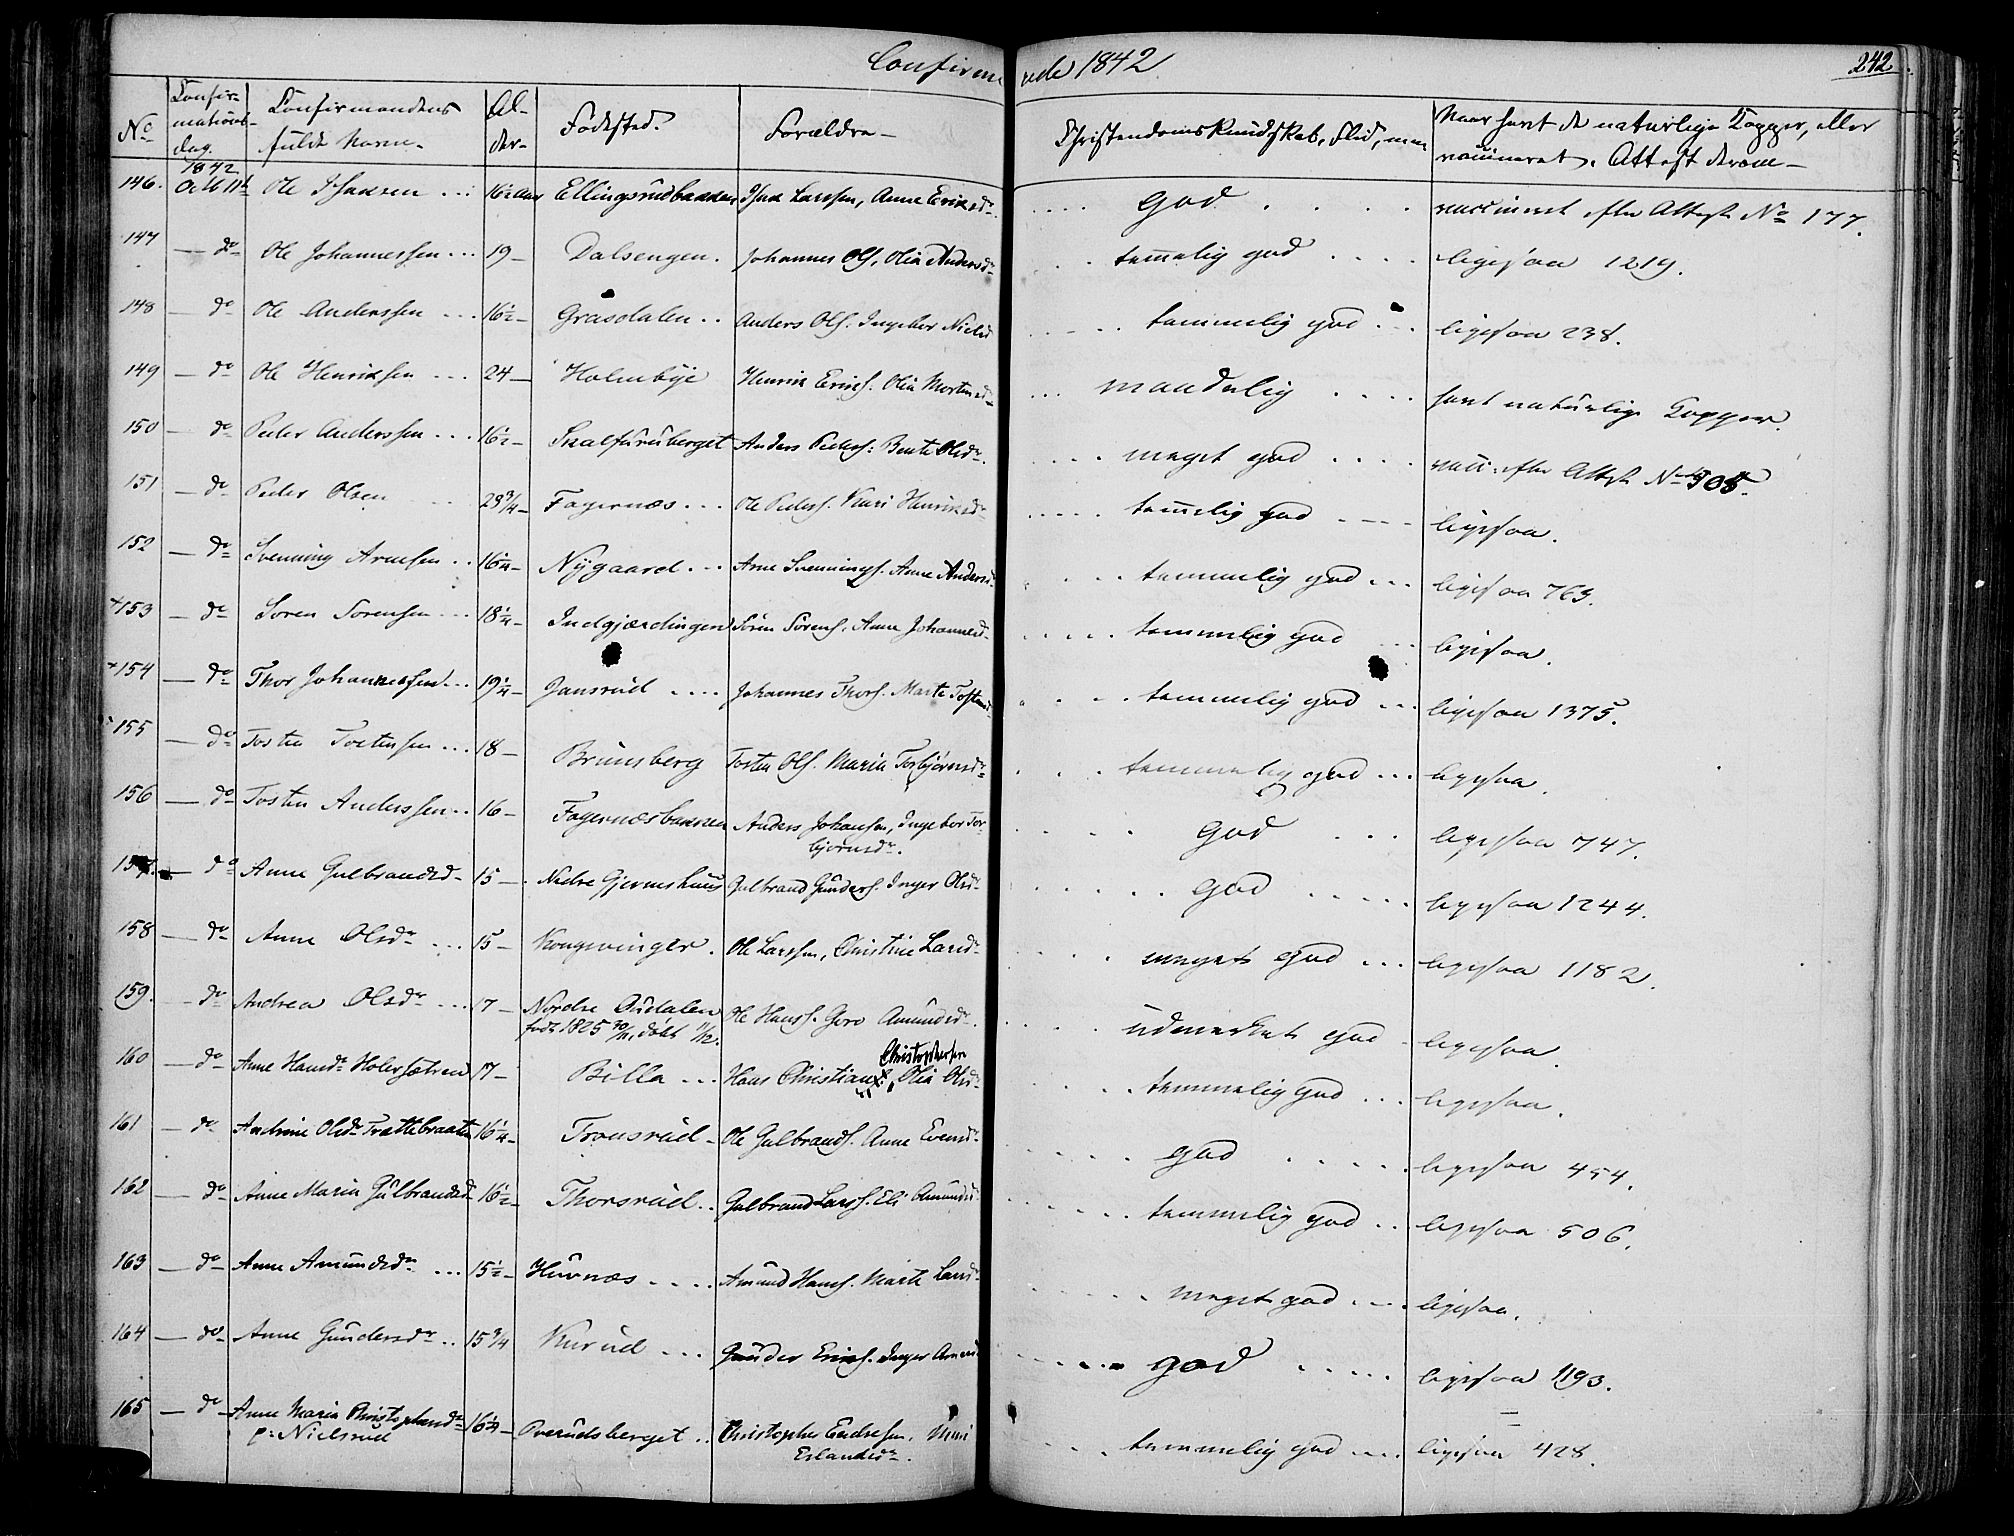 Confirmerede 1842
242
No
Confirmationsdag.
Confirmandens fulde Navn.
Alder
Fødested.
Forældre
Christendoms Kundskab, Flid, m.m
Naar havt de naturlige Kopper, eller vaccineret. Attest derom
1842
146. Octb 11te Ole Isaksen 16½ Aar Ellingsrudbakken Isak Larssen, Anne Eriksdr. god vaccineret efter Attest No 177.
147 do Ole Johannessen 19 Dalsengen. Johannes Ols. Olia Andersdr temelig god ligesaa 1219.
148 do Ole Anderssen 16½ Grasdalen Anders Ols. Ingebor Nielsd temmelig god ligesaa 238.
149 do Ole Henriksen 24 Holmbye Henrik Eriks. Olia Mortensd maadelig havt naturlige Kopper.
150 do Peder Anderssen 16½ Skalfuruberget Anders Peders: Bente Olsdr. meget god vacc. efter Attest No 905.
151 do Peder Olsen 23¾ Fagernæs Ole Peders. Kari Henriksdr temelig god ligesaa.
152 do Svenning Arnesen 16¼ Nygaard Arne Svennings. Anne Andersd temmelig god ligesaa 763.
+153 do Søren Sørensen 18¼ Indgjærdingen Søren Sørens. Anne Johannesd temmelig god ligesaa.
+154 do Thor Johannessen 19¼ Jansrud Johannes Thors. Marte Tostensd temmelig god ligesaa 1375.
155 do Tosten Tostensen 18 Brunsberg Tosten Ols. Maria Torbjørnsdr temmelig god ligesaa.
156 do Tosten Anderssen 16 Fagernæsbakken Anders Johansen, Ingebor Torbjørnsdr. god ligesaa 747.
157. do Anne Gulbrandsd 15 Nedre Gjermshuus Gulbrand Gunders. Inger Olsdr god ligesaa 1244.
158 do Anne Olsdr 15 Kongsvinger. Ole Larssen, Christine Larsdr meget god ligesaa 1182.
159. do Andrea Olsdr 17 Nordre Oudalen født 1825 30/11, døbt 11/12. Ole Hanss. Goro Amundsdr. udmerket god ligesaa.
160 do Anne Hansdr Holersætren 17 Billa Hans Christians. Christophersen Olia Olsdr temmelig god ligesaa.
161 do Andrine Olsdr Trættebraaten 16¼ Tronsrud Ole Gulbrands. Anne Evensdr god ligesaa 454.
162 do Anne Maria Gulbrandsd 16½ Thorsrud Gulbrand Larss. Eli Amundsd temmelig god ligesaa 506.
163 do Anne Amundsdr 15½ Huvnæs Amund Hans. Marte Larsdr meget god ligesaa.
164 do Anne Gundersdr 15¾ Kurud Gunder Eriks. Inger god ligesaa 1193.
165 do Anne Maria Christophersdr p: Nielsrud 16¼ Overudsberget Christopher Endresen, Erlandsdr. temmelig god ligesaa 428.